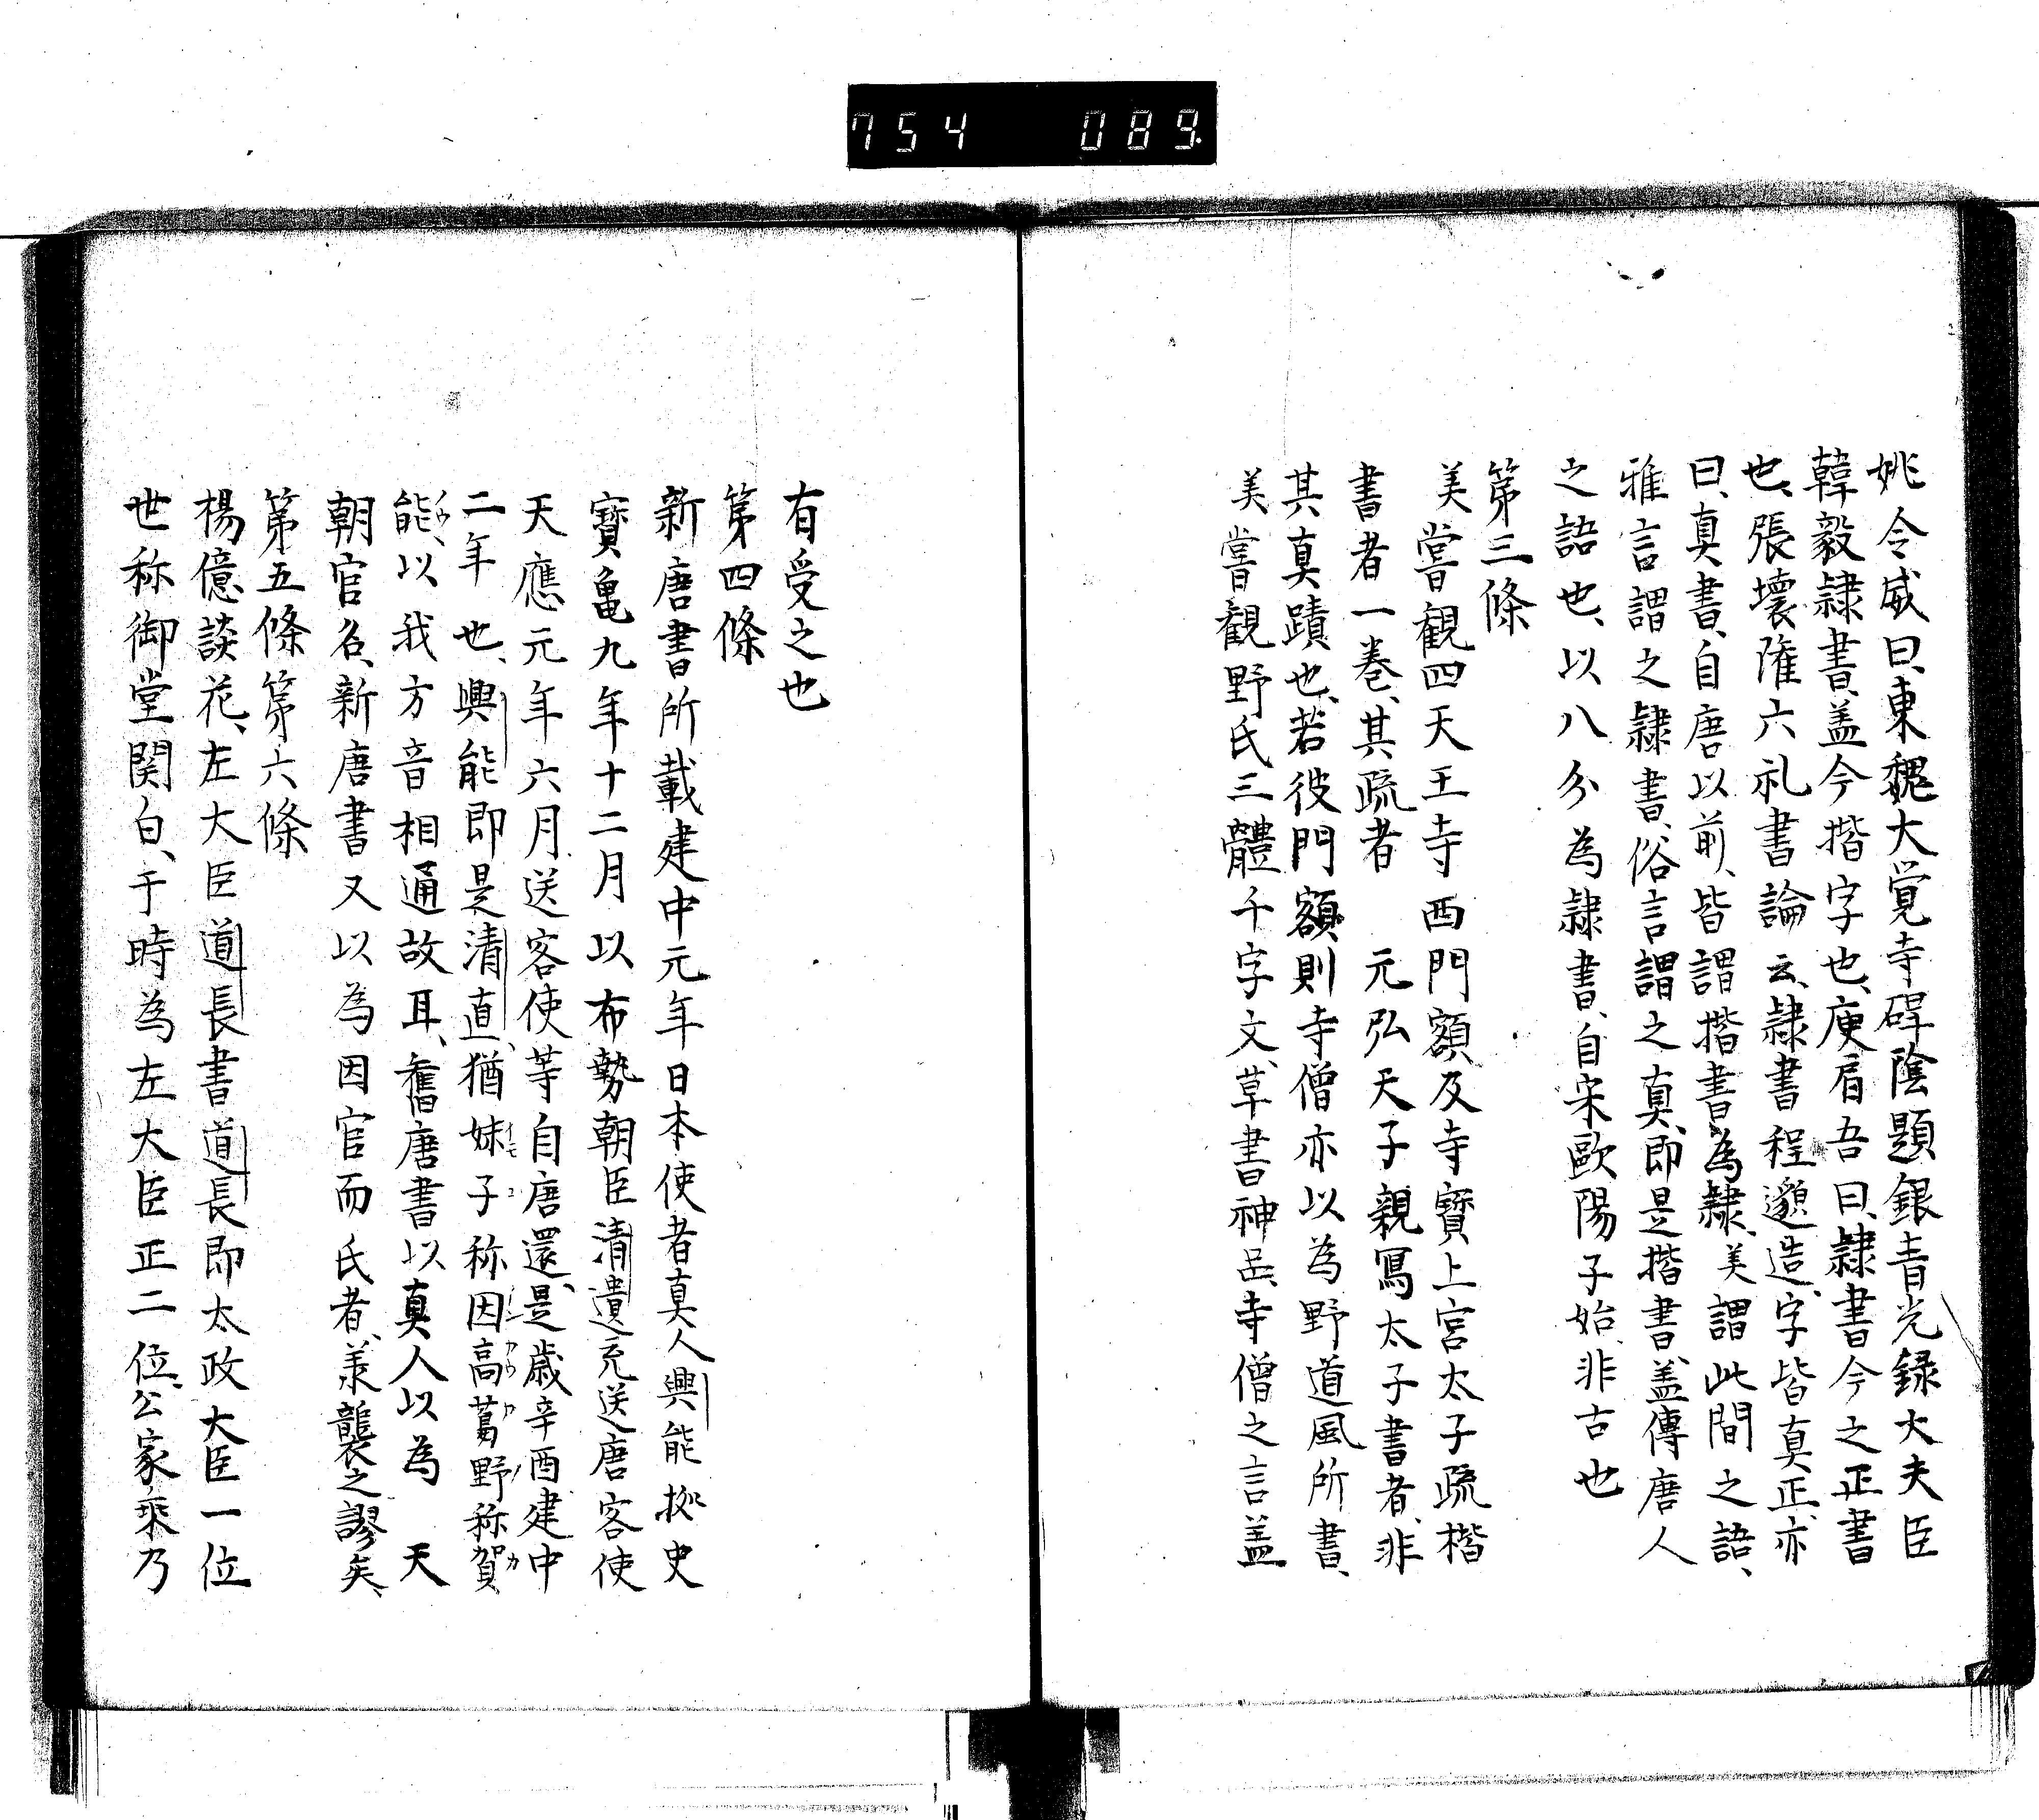 754 089
姚令威曰、東魏大覚寺碑陰題銀青光録大夫臣
韓毅隷書、盖今揩字也、庾肩吾曰、隷書今之正書
也、張壊隆六礼書論云、隷書程邈造、字皆真正、亦
曰、真書、自唐以前、皆謂揩書為隷、美謂此間之語、
雅言謂之隷書、俗言謂之真、即是揩書、盖傳唐人
之語也、以八分為隷書、自宋歐陽子始、非古也
第三條
美嘗観四天王寺西門額及寺寶上宮太子疏楷
書者一巻、其疏者 元弘天子親寫太子書者、非
其真蹟也、若彼門額則寺僧亦以為野道風所書、
美嘗観野氏三體千字文、草書神品、寺僧之言盖
有受之也
第四條
新唐書所載建中元年日本使者真人興能拠史
寶亀九年十二月以布勢朝臣清遺充送唐客使
天應元年六月送客使等自唐還、是歳辛酉建中
二年也、興能即是清直、猶妹子称因高葛野称賀
能、以我方音相通故耳、舊唐書以真人以為 天
朝官名、新唐書又以為因官而氏者、羕襲之謬矣、
第五條第六條
楊億談花、左大臣道長書道長即太政大臣一位
世称御堂関白、于時為左大臣正二位、公家乘乃